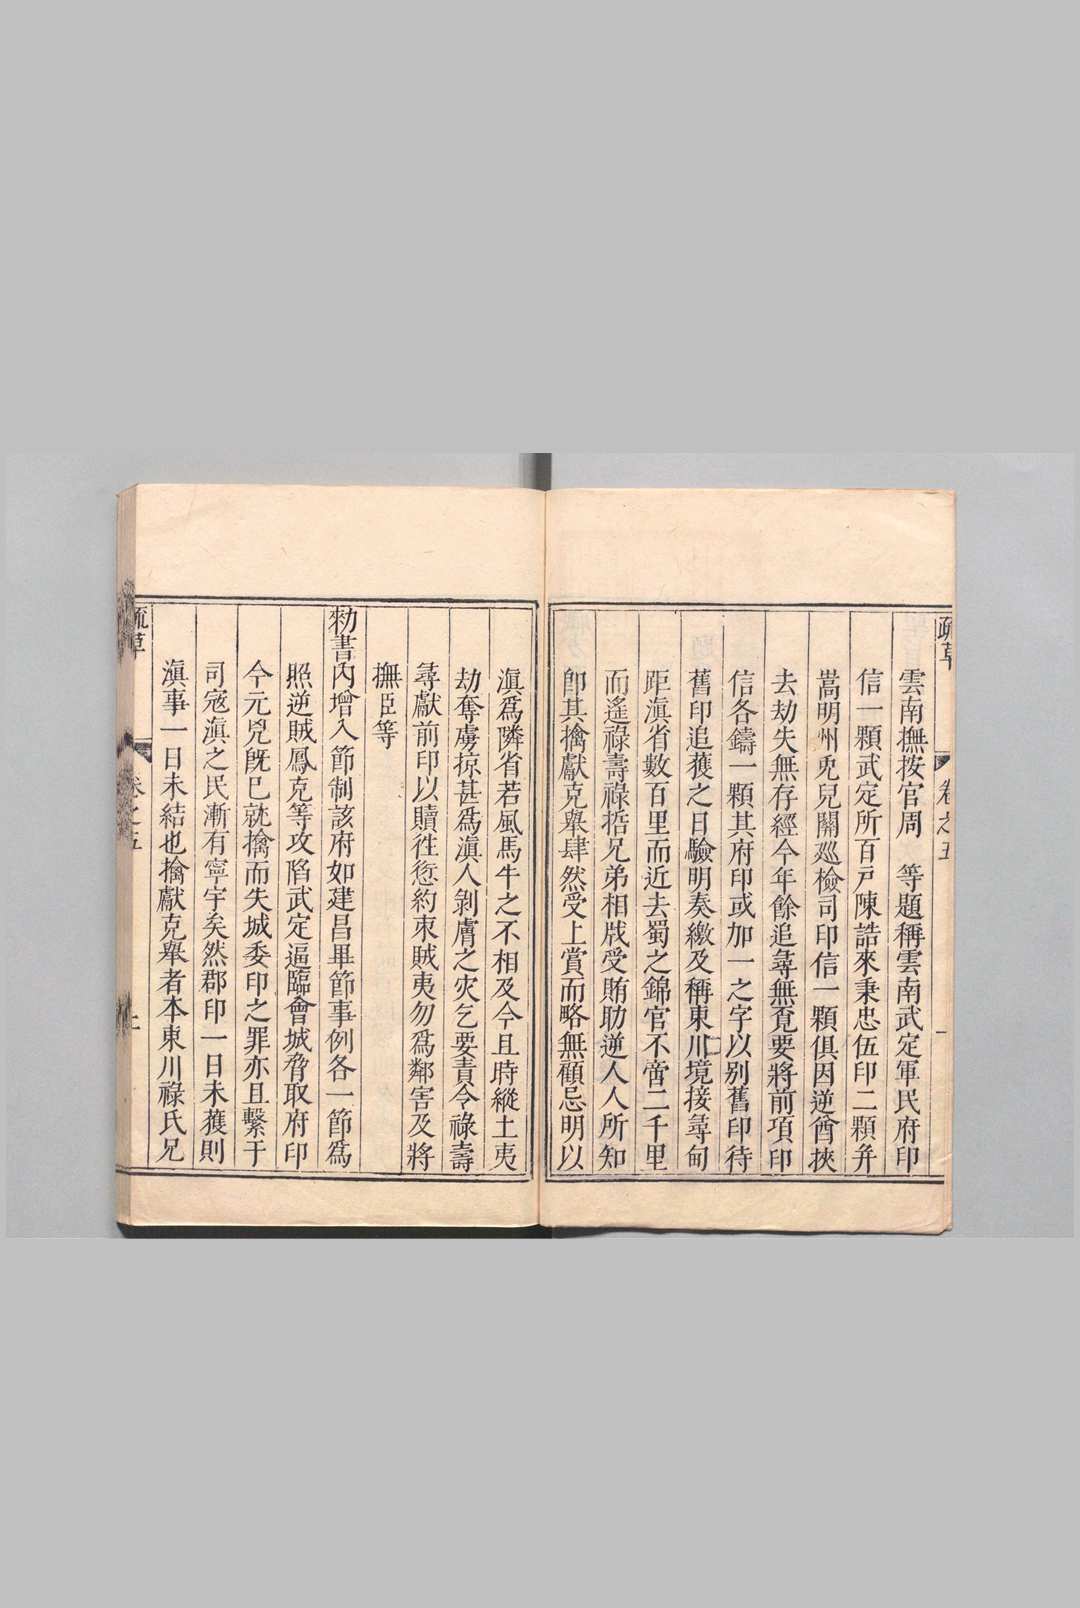 疏草
卷之五
一
雲南撫按官周　等題稱雲南武定軍民府印
信一顆武定所百戶陳誥來秉忠伍印二顆并
嵩明州兔兒關廵檢司印信一顆俱因逆酋挾
去劫失無存經今年餘追尋無覔要將前項印
信各鑄一顆其府印或加一之字以别舊印待
舊印追獲之日驗明奏繳及稱東川境接尋甸
距滇省數百里而近去蜀之錦官不啻二千里
而遙祿壽祿哲兄弟相戕受賄助逆人人所知
卽其擒獻克舉肆然受上賞而略無顧忌明以
滇爲隣省若風馬牛之不相及今且時縱土夷
劫奪虜掠甚爲滇人剝膚之灾乞要責令祿壽
尋獻前印以贖徃愆約束賊夷勿爲鄰害及將
撫臣等
勑書內增入節制該府如建昌畢節事例各一節爲
照逆賊鳳克等攻陷武定逼臨會城脅取府印
今元兇旣已就擒而失城委印之罪亦且繫于
司寇滇之民漸有寧宇矣然郡印一日未獲則
滇事一日未結也擒獻克舉者本東川祿氏兄
疏草
卷之五